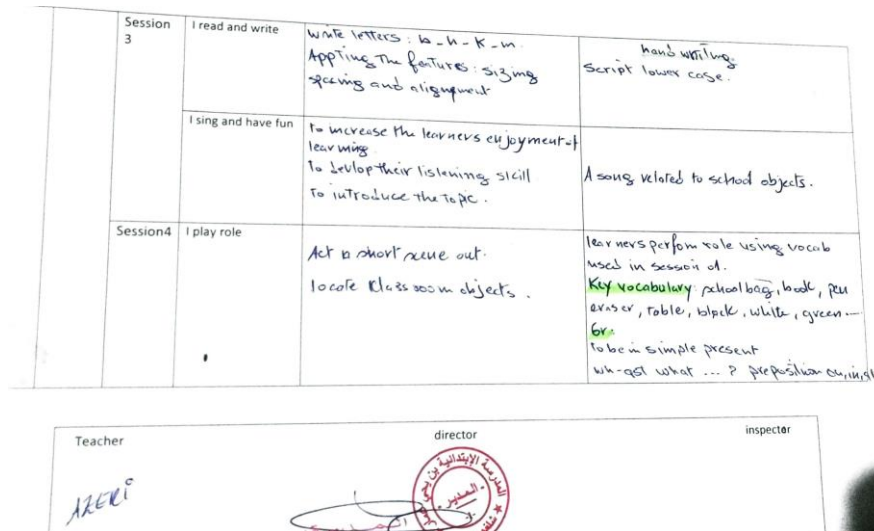 Session 3
I read and write
write letters : b - h - K - m.
Appling The features : sizing
spacing and alignment
hand writing.
Script lower case.
I sing and have fun
To increase the learners enjoyment of
learning
To devlop their listening skill
To introduce the topic.
A song related to school objects.
Session4
I play role
Act a short scene out.
locate Classroom objects.
learners perfom role using vocab
used in session 1.
Key vocabulary: schoolbag, book, pen
eraser, table, black, white, green ...
Gr:
To be in simple present
wh-qst what ... ? preposition on, in,
Teacher
director
inspector
AZERI
المدرسة الإبتدائية بن يحي
المدير